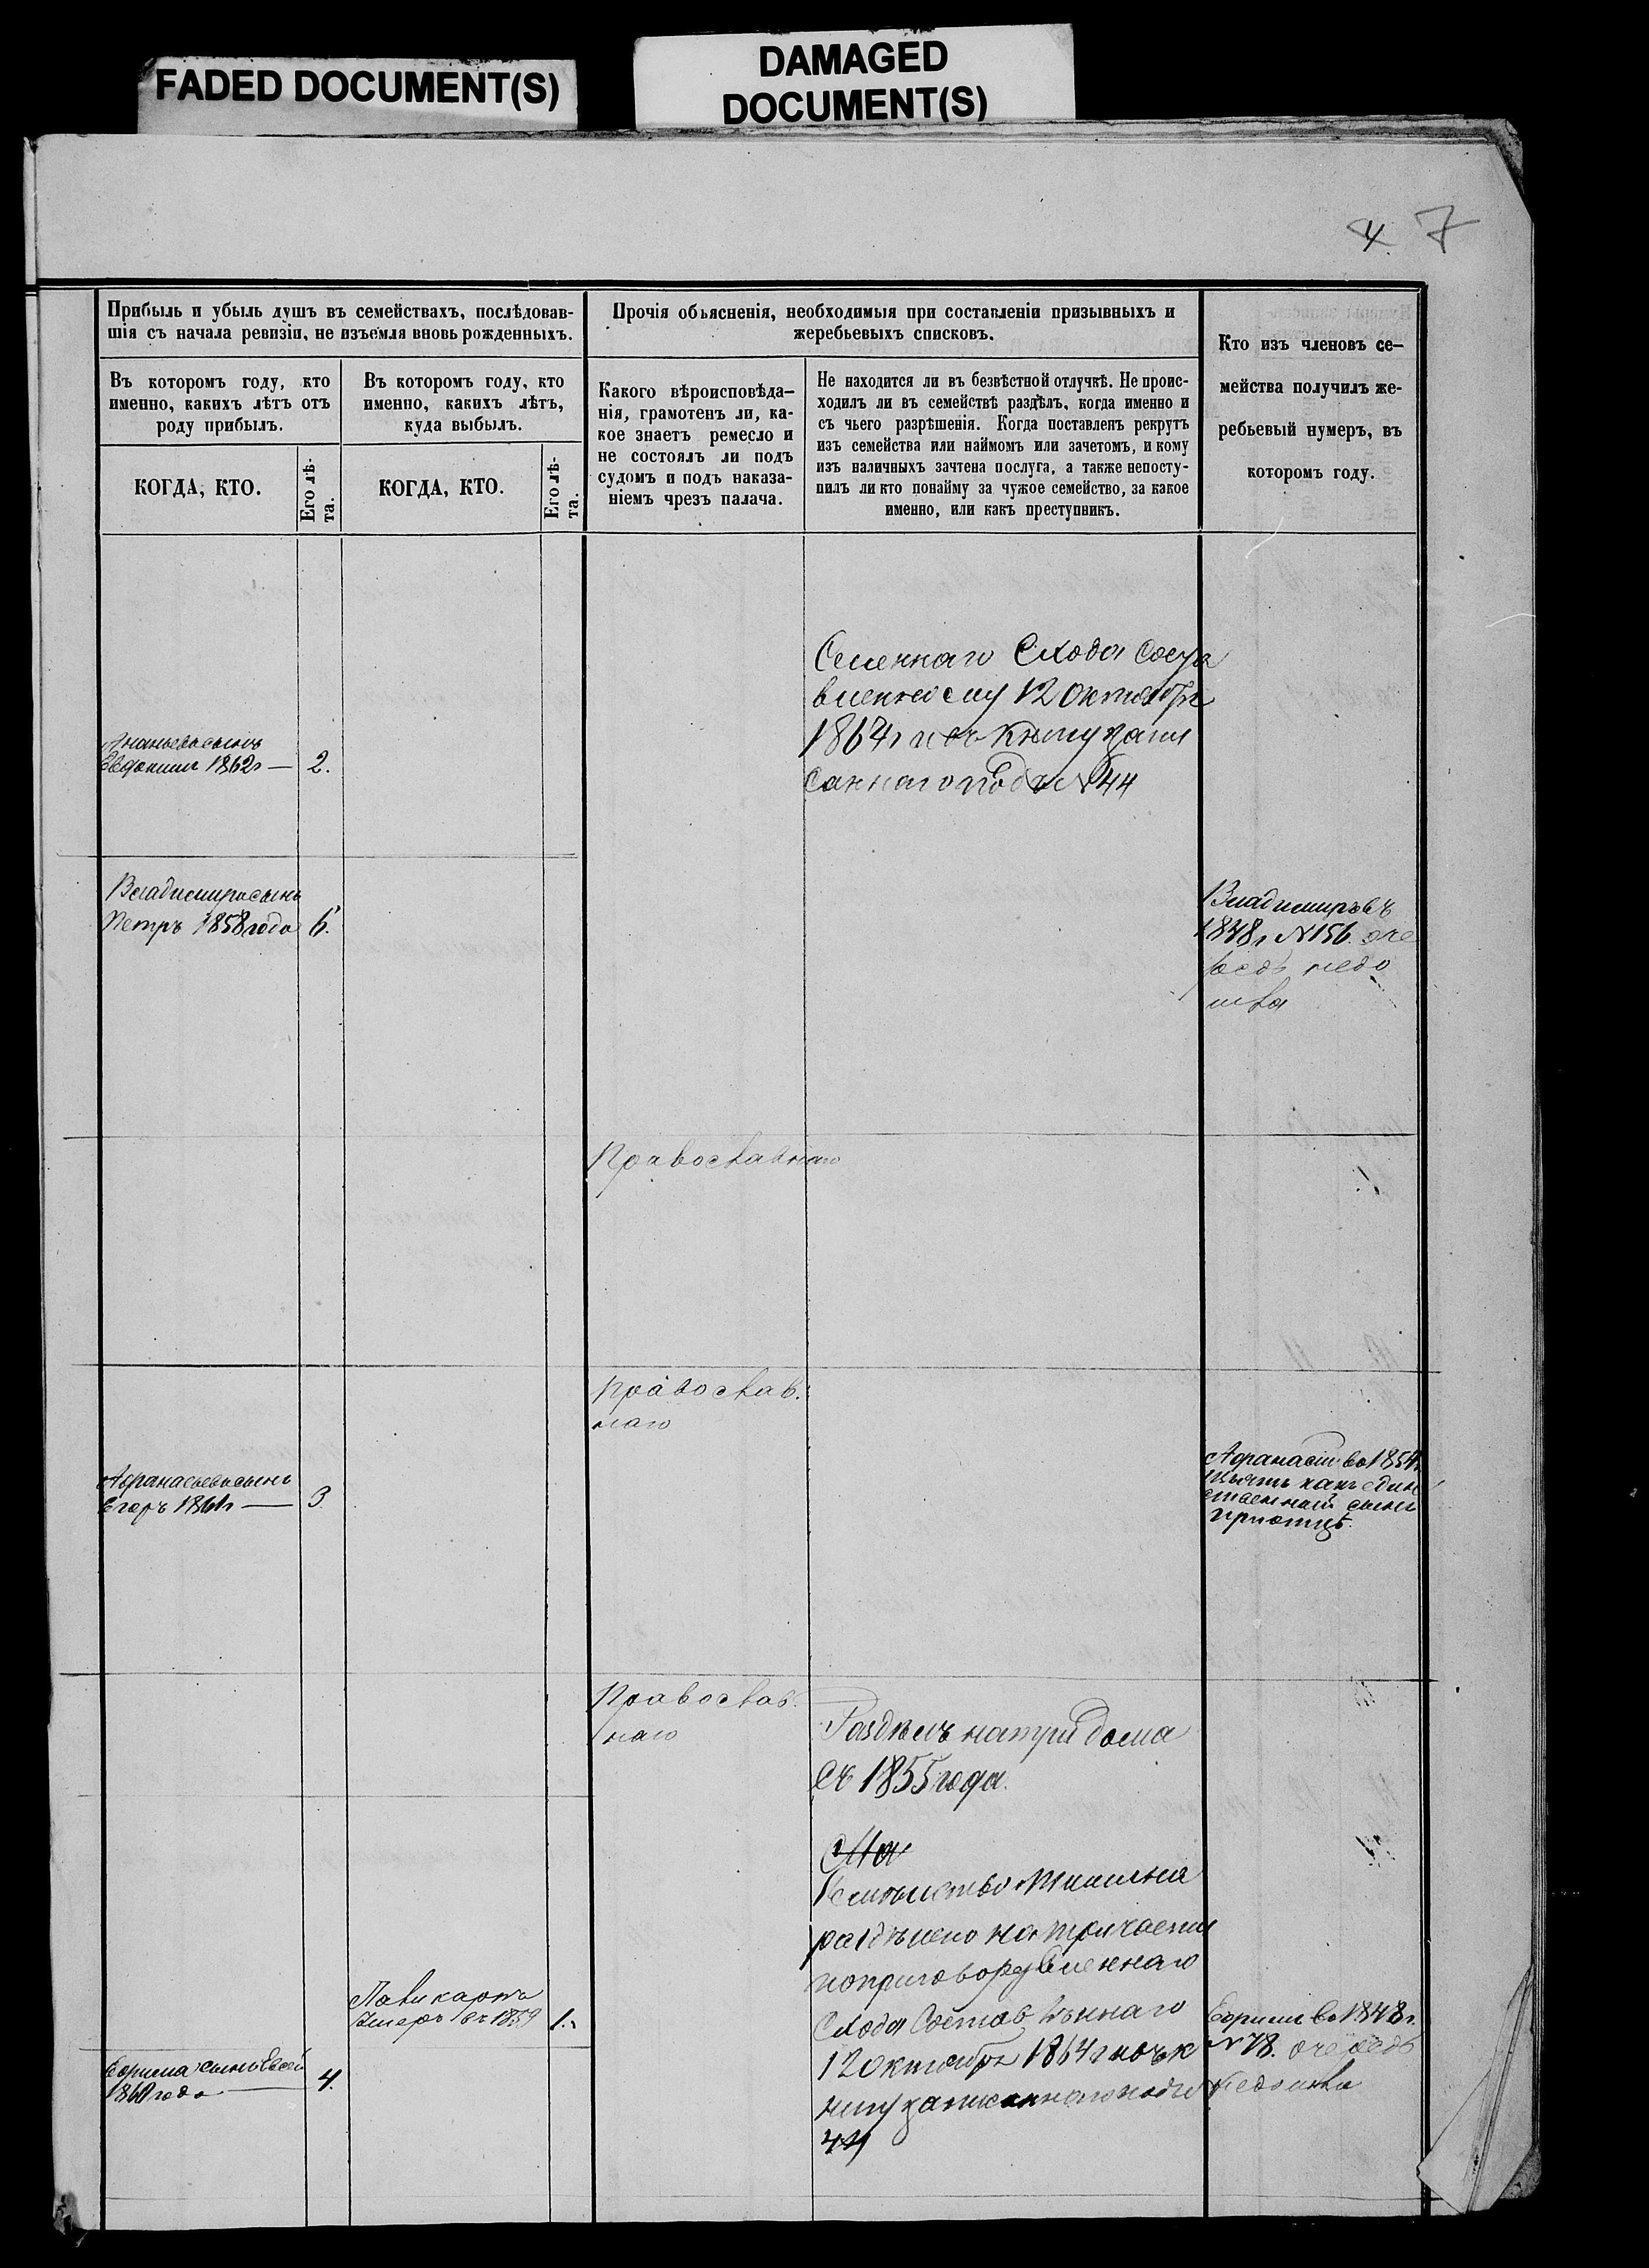 FADED DOCUMENT(S)
DAMAGED
DOCUMENT(S)
4. 7
Прибыль и убыль душъ въ семействахъ, послѣдовав-
шія съ начала ревизіи, не изъемля вновь рожденныхъ.
Прочія объясненія, необходимыя при составленіи призывныхъ и
жеребьевыхъ списковъ.
Кто изъ членовъ се-
мейства получилъ же-
ребьевый нумеръ, въ
которомъ году.
Въ которомъ году, кто
именно, какихъ лѣтъ отъ
роду прибылъ.
Въ которомъ году, кто
именно, какихъ лѣтъ,
куда выбылъ.
Какого вѣроисповѣда-
нія, грамотенъ ли, ка-
кое знаетъ ремесло и
не состоялъ ли подъ
судомъ и подъ наказа-
ніемъ чрезъ палача.
Не находится ли въ безвѣстной отлучкѣ. Не проис-
ходилъ ли въ семействѣ раздѣлъ, когда именно и
съ чьего разрѣшенія. Когда поставленъ рекрутъ
изъ семейства или наймомъ или зачетомъ, и кому
изъ наличныхъ зачтена послуга, а также непосту-
пилъ ли кто понайму за чужое семейство, за какое
именно, или какъ преступникъ.
КОГДА, КТО.
Его лѣ-
та.
КОГДА, КТО.
Его лѣ-
та.
Селеннаго Схода Соста
вленному 12 Октября
1864 г и въ Книгу запи
саннаго подъ №44
Ананьевъ сынъ
Евдокимъ 1862 г — 2.
Владимира сынъ
Петръ 1858 года 6.
Владимиръ въ
1848 г №156. оче
редь недо
шла
Православнаго
Православ.
наго
Афанасьевъ сынъ
Егоръ 1861 г — 3
Афанасій во 1854 г.
какъ един
ственный сынъ
при отцѣ.
Православ.
наго
Раздѣлъ на три дома
съ 1855 года.
Семѣйство
раздѣлено на три части
по приговору Селеннаго
Схода Составлѣннаго
12 октября 1864 г и въ к
нигу записаннаго подъ №
44
Поликарпъ
Умеръ въ 1859 1.
Ефима сынъ Евсей
1860 года — 4.
Ефимъ во 1848 г.
№78. очередь
недошла